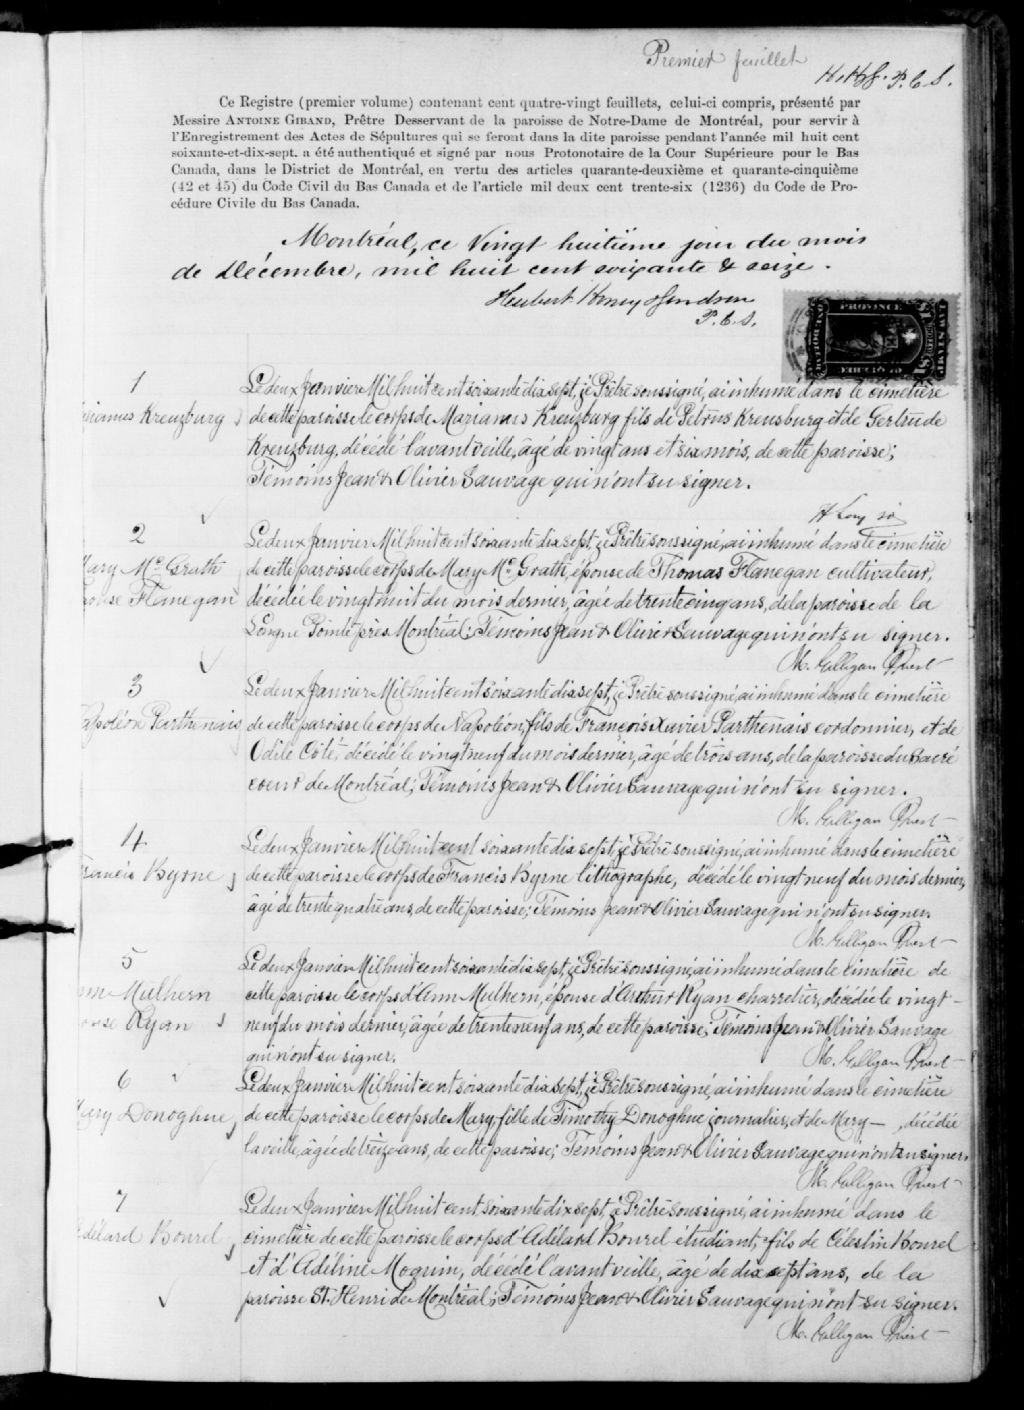 Premier feuillet
H. H. G. P. C. S.
Ce Registre (premier volume) contenant cent quatre-vingt feuillets, celui-ci compris, présenté par
Messire ANTOINE GIBAND, Prêtre Desservant de la paroisse de Notre-Dame de Montréal, pour servir à
l'Enregistrement des Actes de Sépultures qui se feront dans la dite paroisse pendant l'année mil huit cent
soixante-et-dix-sept. a été authentiqué et signé par nous Protonotaire de la Cour Supérieure pour le Bas
Canada, dans le District de Montréal, en vertu des articles quarante-deuxième et quarante-cinquième
(42 et 45) du Code Civil du Bas Canada et de l'article mil deux cent trente-six (1236) du Code de Pro-
cédure Civile du Bas Canada.
Montréal, ce Vingt huitième jour du mois
de Décembre, mil huit cent soixante & seize.
Hubert Henry Gendron
P. C. S.
PROVINCE
1
Le deux Janvier Mil huit cent soixante dix sept, je Prêtre soussigné, ai inhumé dans le cimetière
rianus Kreuzburg
de cette paroisse le corps de Marianus Kreuzburg fils de Petrus Kreusburg et de Gertrude
Kreuzburg, décédé l'avant veille, âgé de vingt ans et six mois, de cette paroisse;
Témoins Jean & Olivier Sauvage qui n'ont su signer.
2
Le deux Janvier Mil huit cent soixante dix sept, je Prêtre soussigné, ai inhumé dans le cimetière
Mary Mc Grath
de cette paroisse le corps de Mary Mc Grath, épouse de Thomas Flanegan cultivateur,
pouse Flanegan
décédée le vingt huit du mois dernier, âgée de trente cinq ans, de la paroisse de la
Longue Pointe près Montréal; Témoins Jean & Olivier Sauvage qui n'ont su signer.
M. Culligan Priest
3
Le deux Janvier Mil huit cent soixante dix sept, je Prêtre soussigné, ai inhumé dans le cimetière
apoléon Parthenais
de cette paroisse le corps de Napoléon, fils de François Xavier Parthenais cordonnier, et de
Odile Côté, décédé le vingt neuf du mois dernier, âgé de trois ans, de la paroisse du Sacré
coeur de Montréal; Témoins Jean & Olivier Sauvage qui n'ont su signer.
M. Culligan Priest
4
Le deux Janvier Mil huit cent soixante dix sept, je Prêtre soussigné, ai inhumé dans le cimetière
Francis Byrne
de cette paroisse le corps de Francis Byrne lithographe, décédé le vingt neuf du mois dernier,
âgé de trente quatre ans, de cette paroisse; Témoins Jean & Olivier Sauvage qui n'ont su signer.
M. Culligan Priest
5
Le deux Janvier Mil huit cent soixante dix sept, je Prêtre soussigné, ai inhumé dans le cimetière de
nn Mulhern
cette paroisse le corps d'Ann Mulhern, épouse d'Arthur Ryan charretier, décédée le vingt-
ouse Ryan
neuf du mois dernier, âgée de trente neuf ans, de cette paroisse; Témoins Jean & Olivier Sauvage
qui n'ont su signer.
M. Culligan Priest
6
Le deux Janvier Mil huit cent soixante dix sept, je Prêtre soussigné, ai inhumé dans le cimetière
Mary Donoghue
de cette paroisse le corps de Mary, fille de Timothy Donoghue journalier, et de Mary —, décédée
la veille, âgée de treize ans, de cette paroisse; Témoins Jean & Olivier Sauvage qui n'ont su signer.
M. Culligan Priest
7
Le deux Janvier Mil huit cent soixante dix sept, je Prêtre soussigné, ai inhumé dans le
délard Bourel
cimetière de cette paroisse le corps d'Adélard Bourel étudiant, fils de Célestin Bourel
et d'Adéline Moquin, décédé l'avant veille, âgé de dix sept ans, de la
paroisse St. Henri de Montréal; Témoins Jean & Olivier Sauvage qui n'ont su signer.
M. Culligan Priest